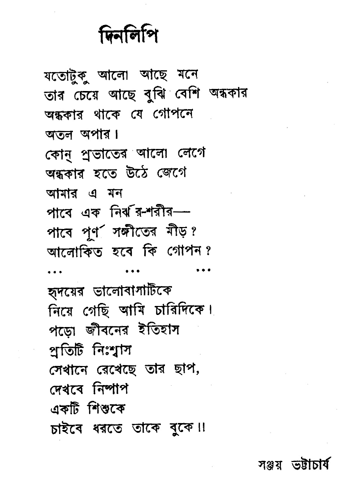 দিনলিপি
যতোটুকু আলো আছে মনে
তার চেয়ে আছে বুঝি বেশি অন্ধকার
অন্ধকার থাকে যে গোপনে
অতল অপার।
কোন্ প্রভাতের আলো লেগে
অন্ধকার হতে উঠে জেগে
আমার এ মন
পাবে এক নির্ঝর-শরীর—
পাবে পূর্ণ সঙ্গীতের মীড়?
আলোকিত হবে কি গোপন?
... ... ...
হৃদয়ের ভালোবাসাটিকে
নিয়ে গেছি আমি চারিদিকে।
পড়ো জীবনের ইতিহাস
প্রতিটি নিঃশ্বাস
সেখানে রেখেছে তার ছাপ,
দেখবে নিষ্পাপ
একটি শিশুকে
চাইবে ধরতে তাকে বুকে।।
সঞ্জয় ভট্টাচার্য